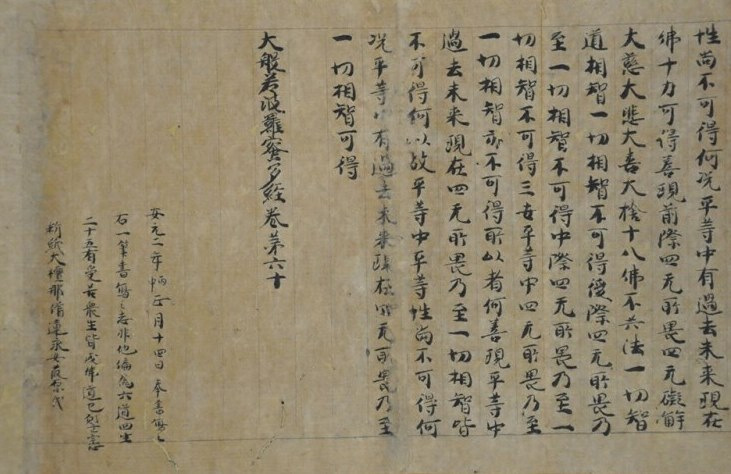 性尚不可得何況平等中有過去未来現在
佛十力可得善現前際四无所畏四无礙解
大慈大悲大喜大捨十八佛不共法一切智
道相智一切相智不可得後際四无所畏乃
至一切相智不可得中際四无所畏乃至一
切相智不可得三世平等中四无所畏乃至
一切相智亦不可得所以者何善現平等中
過去未来現在四无所畏乃至一切相智皆
不可得何以故平等中平等性尚不可得何
況平等中有過去未来現在四无所畏乃至
一切相智可得
大般若波羅蜜多經卷第六十
安元二年丙申正月十四日奉書寫
右一筆書寫之志非他偏為六道四生
二十五有受苦衆生皆成佛道也
料紙大檀那清